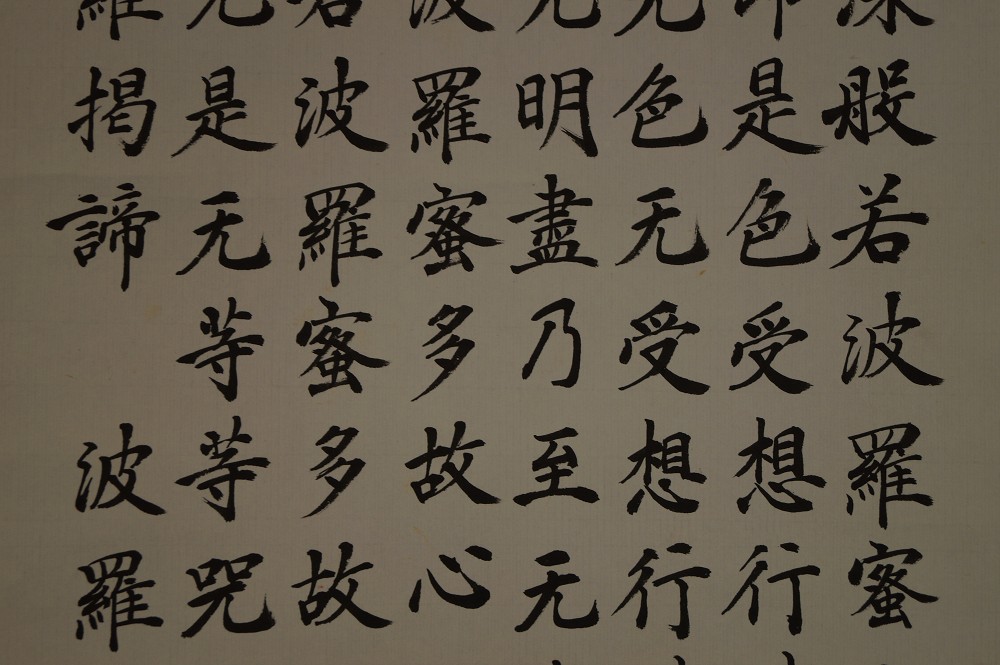 深般若波羅蜜
即是色受想行
无色无受想行
无明盡乃至无
波羅蜜多故心
若波羅蜜多故
无是无等等咒
羅揭諦 波羅